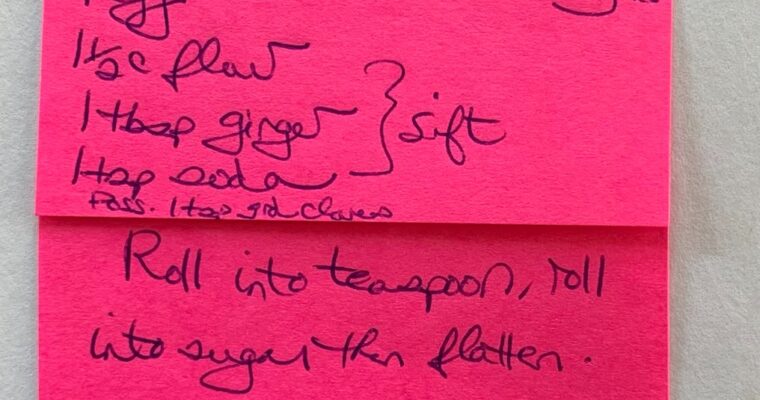 1½ c flour
1 tbsp ginger } sift
1 tsp soda
Poss. 1 tsp grd cloves
Roll into teaspoon, roll
into sugar then flatten.